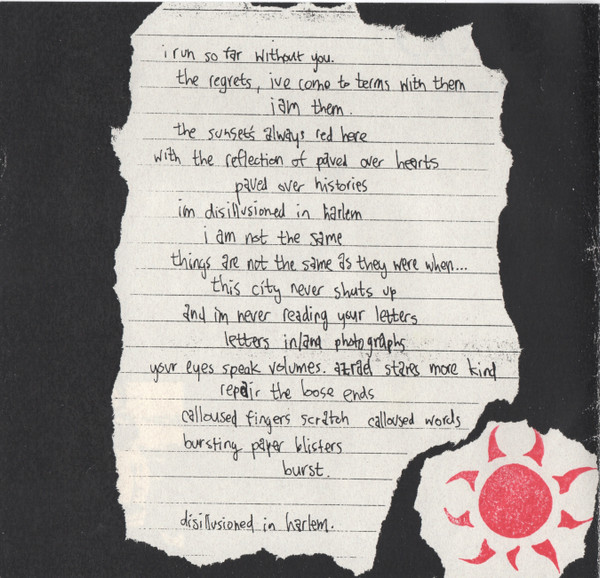 i run so far without you.
the regrets, ive come to terms with them
i am them.
the sunsets always red here
with the reflection of paved over hearts
paved over histories
im disillusioned in harlem
i am not the same
things are not the same as they were when...
this city never shuts up
and im never reading your letters
letters in/and photographs
your eyes speak volumes. azrael stares more kind
repair the loose ends
calloused fingers scratch calloused words
bursting paper blisters
burst.
disillusioned in harlem.